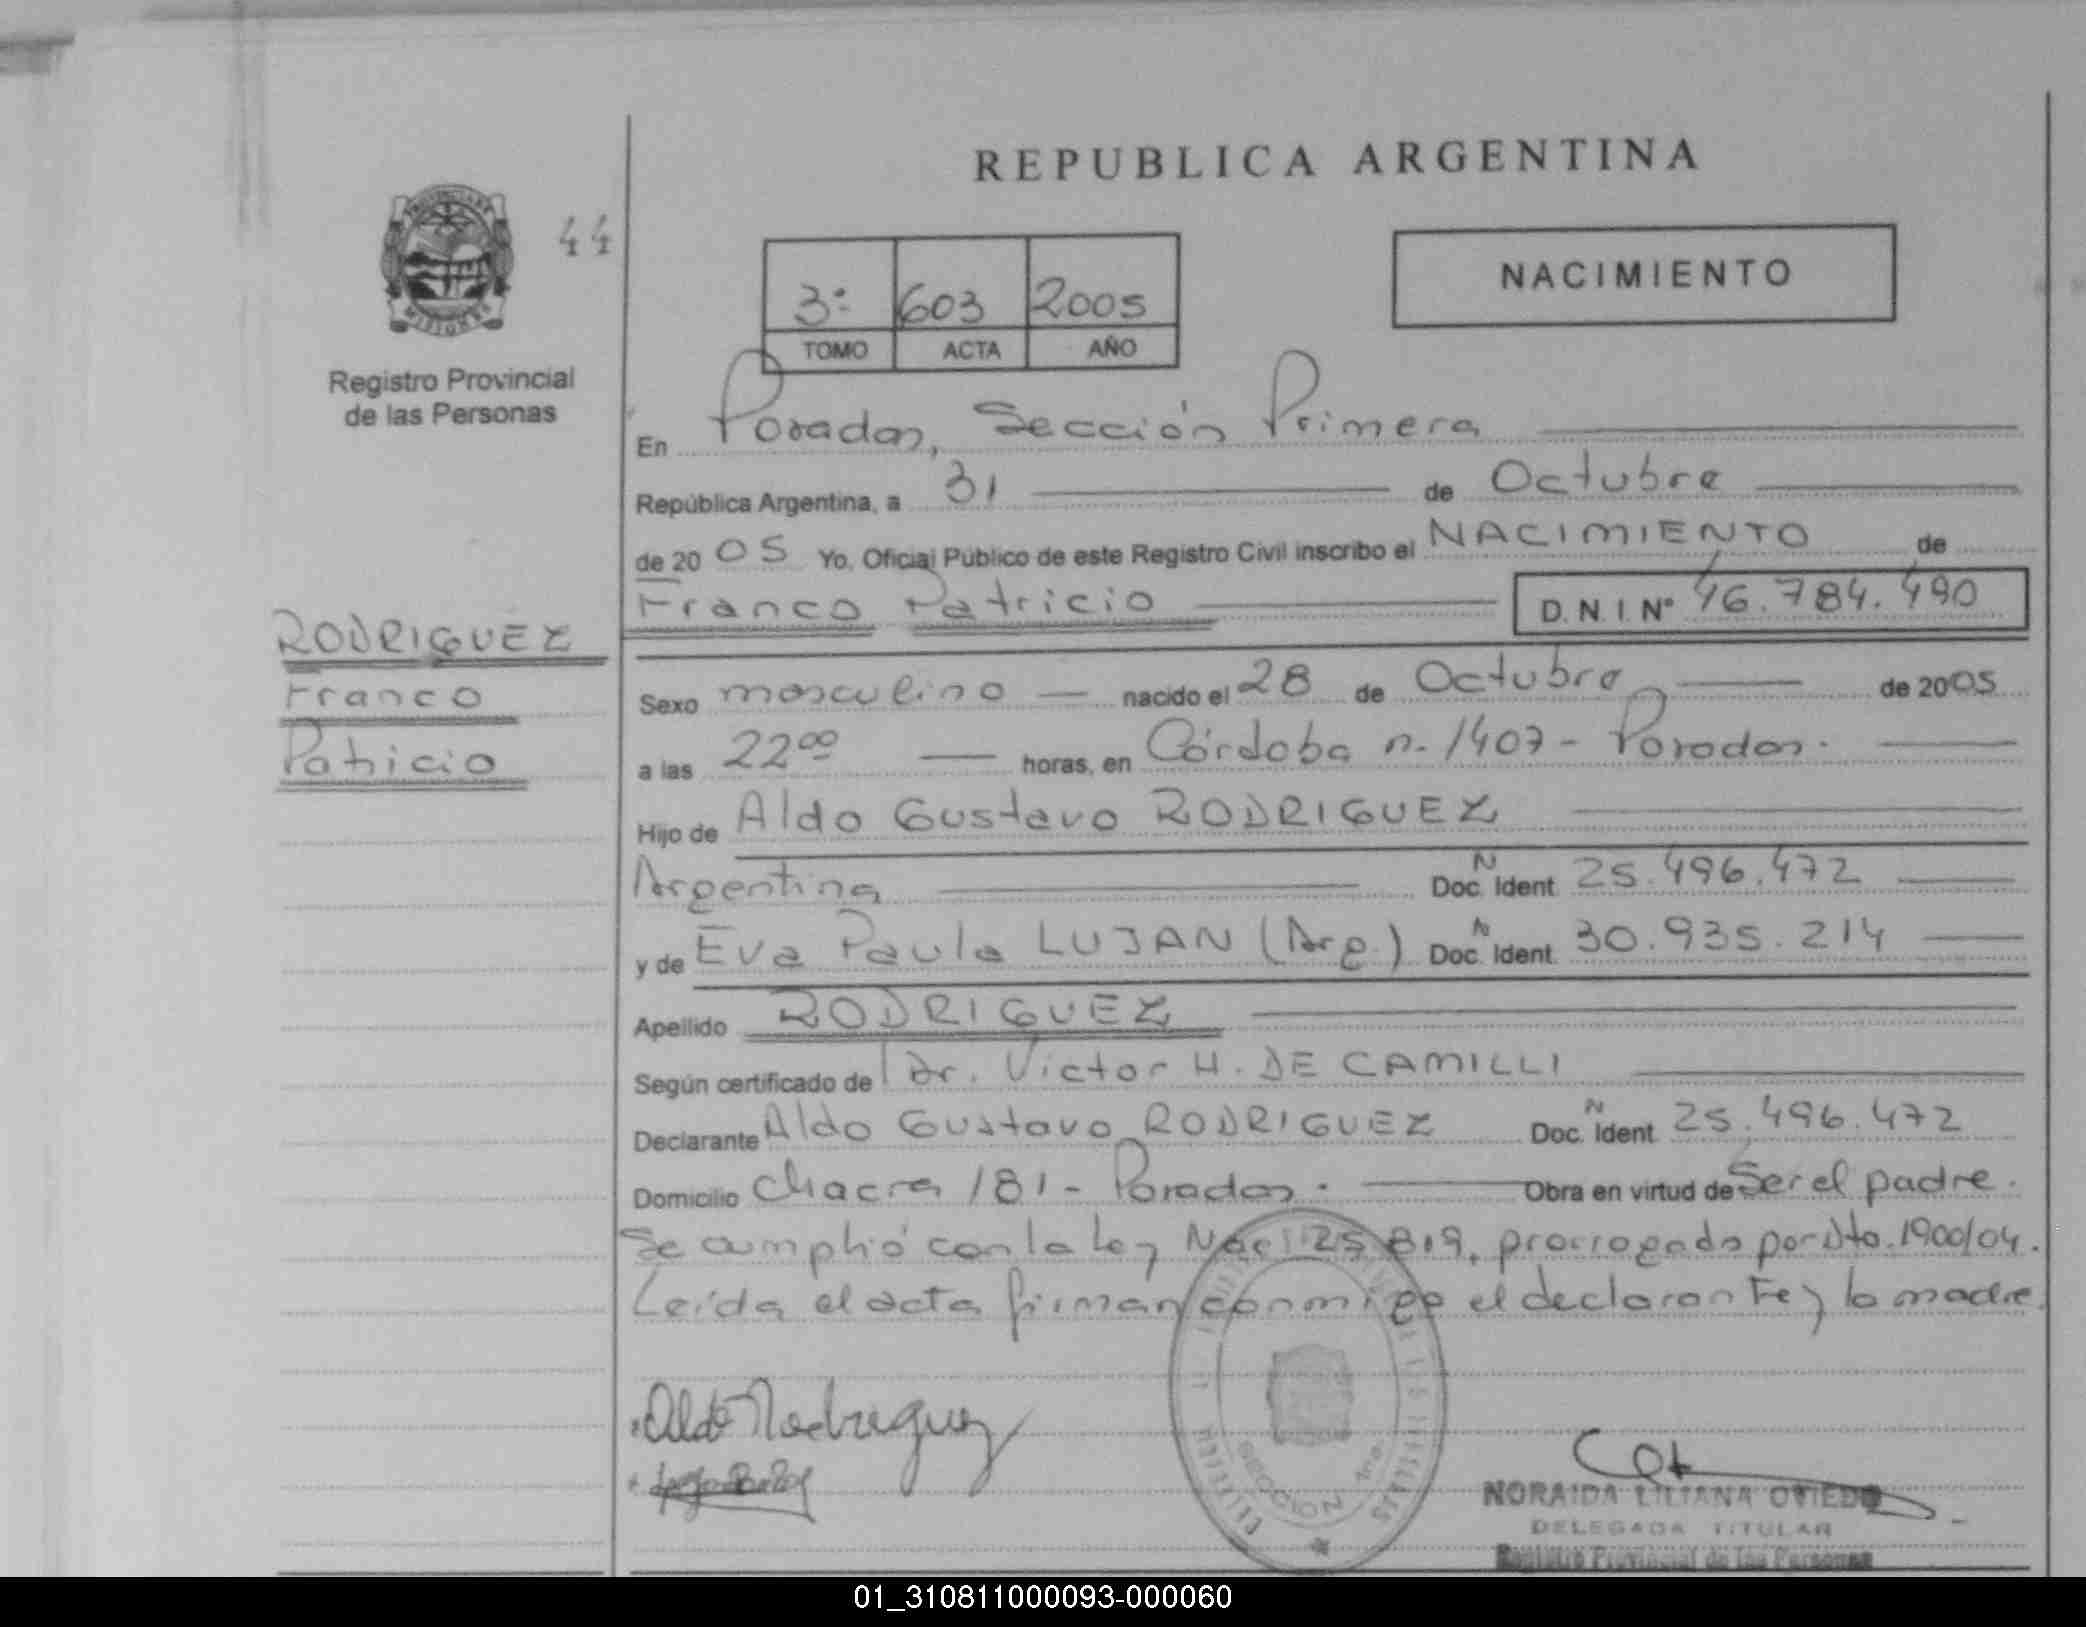 REPUBLICA ARGENTINA
44
NACIMIENTO
3º 603 2005
TOMO ACTA AÑO
Registro Provincial
de las Personas
En Posadas, Sección Primera
República Argentina, a 31 de Octubre
de 2005 Yo, Oficial Público de este Registro Civil inscribo el NACIMIENTO de
Franco Patricio D.N.I. Nº 46.784.490
RODRIGUEZ
Franco
Patricio
Sexo masculino nacido el 28 de Octubre de 2005
a las 22 00 horas, en Córdoba n. 1407 - Posadas.
Hijo de Aldo Gustavo RODRIGUEZ
Argentina Doc. N Ident. 25.496.472
y de Eva Paula LUJAN (Arg.) Doc. N Ident. 30.935.214
Apellido RODRIGUEZ
Según certificado de Dr. Victor H. DE CAMILLI
Declarante Aldo Gustavo RODRIGUEZ Doc. N Ident. 25.496.472
Domicilio Chacra 181 - Posadas. Obra en virtud de Ser el padre.
Se cumplió con la Ley Nac. 25.819, prorrogada por Dto. 1900/04.
Leída el acta firman conmigo el declarante y la madre.
Aldo Rodriguez
SECCION 1ra.
NORAIDA LILIANA OVIEDO
DELEGADA TITULAR
Registro Provincial de las Personas
01_310811000093-000060